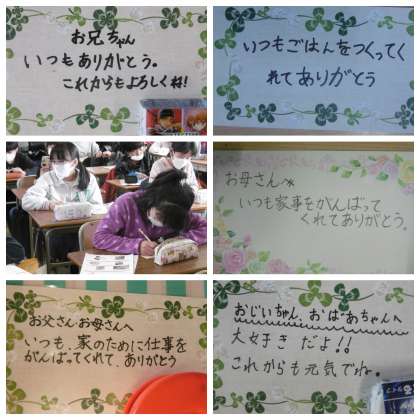 お兄ちゃん
いつもありがとう。
これからもよろしくね!
いつもごはんをつくってく
れてありがとう
お母さんへ
いつも家事をがんばって
くれてありがとう。
お父さんお母さんへ
いつも、家のために仕事を
がんばってくれて、ありがとう
おじいちゃん、おばあちゃんへ
大好きだよ!!
これからも元気でね。